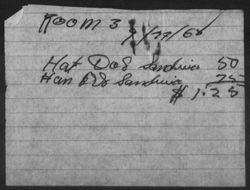 ROOM 3
/22/6
Hot Dog Sandwic 50
Ham Sandwic 75
$1.25